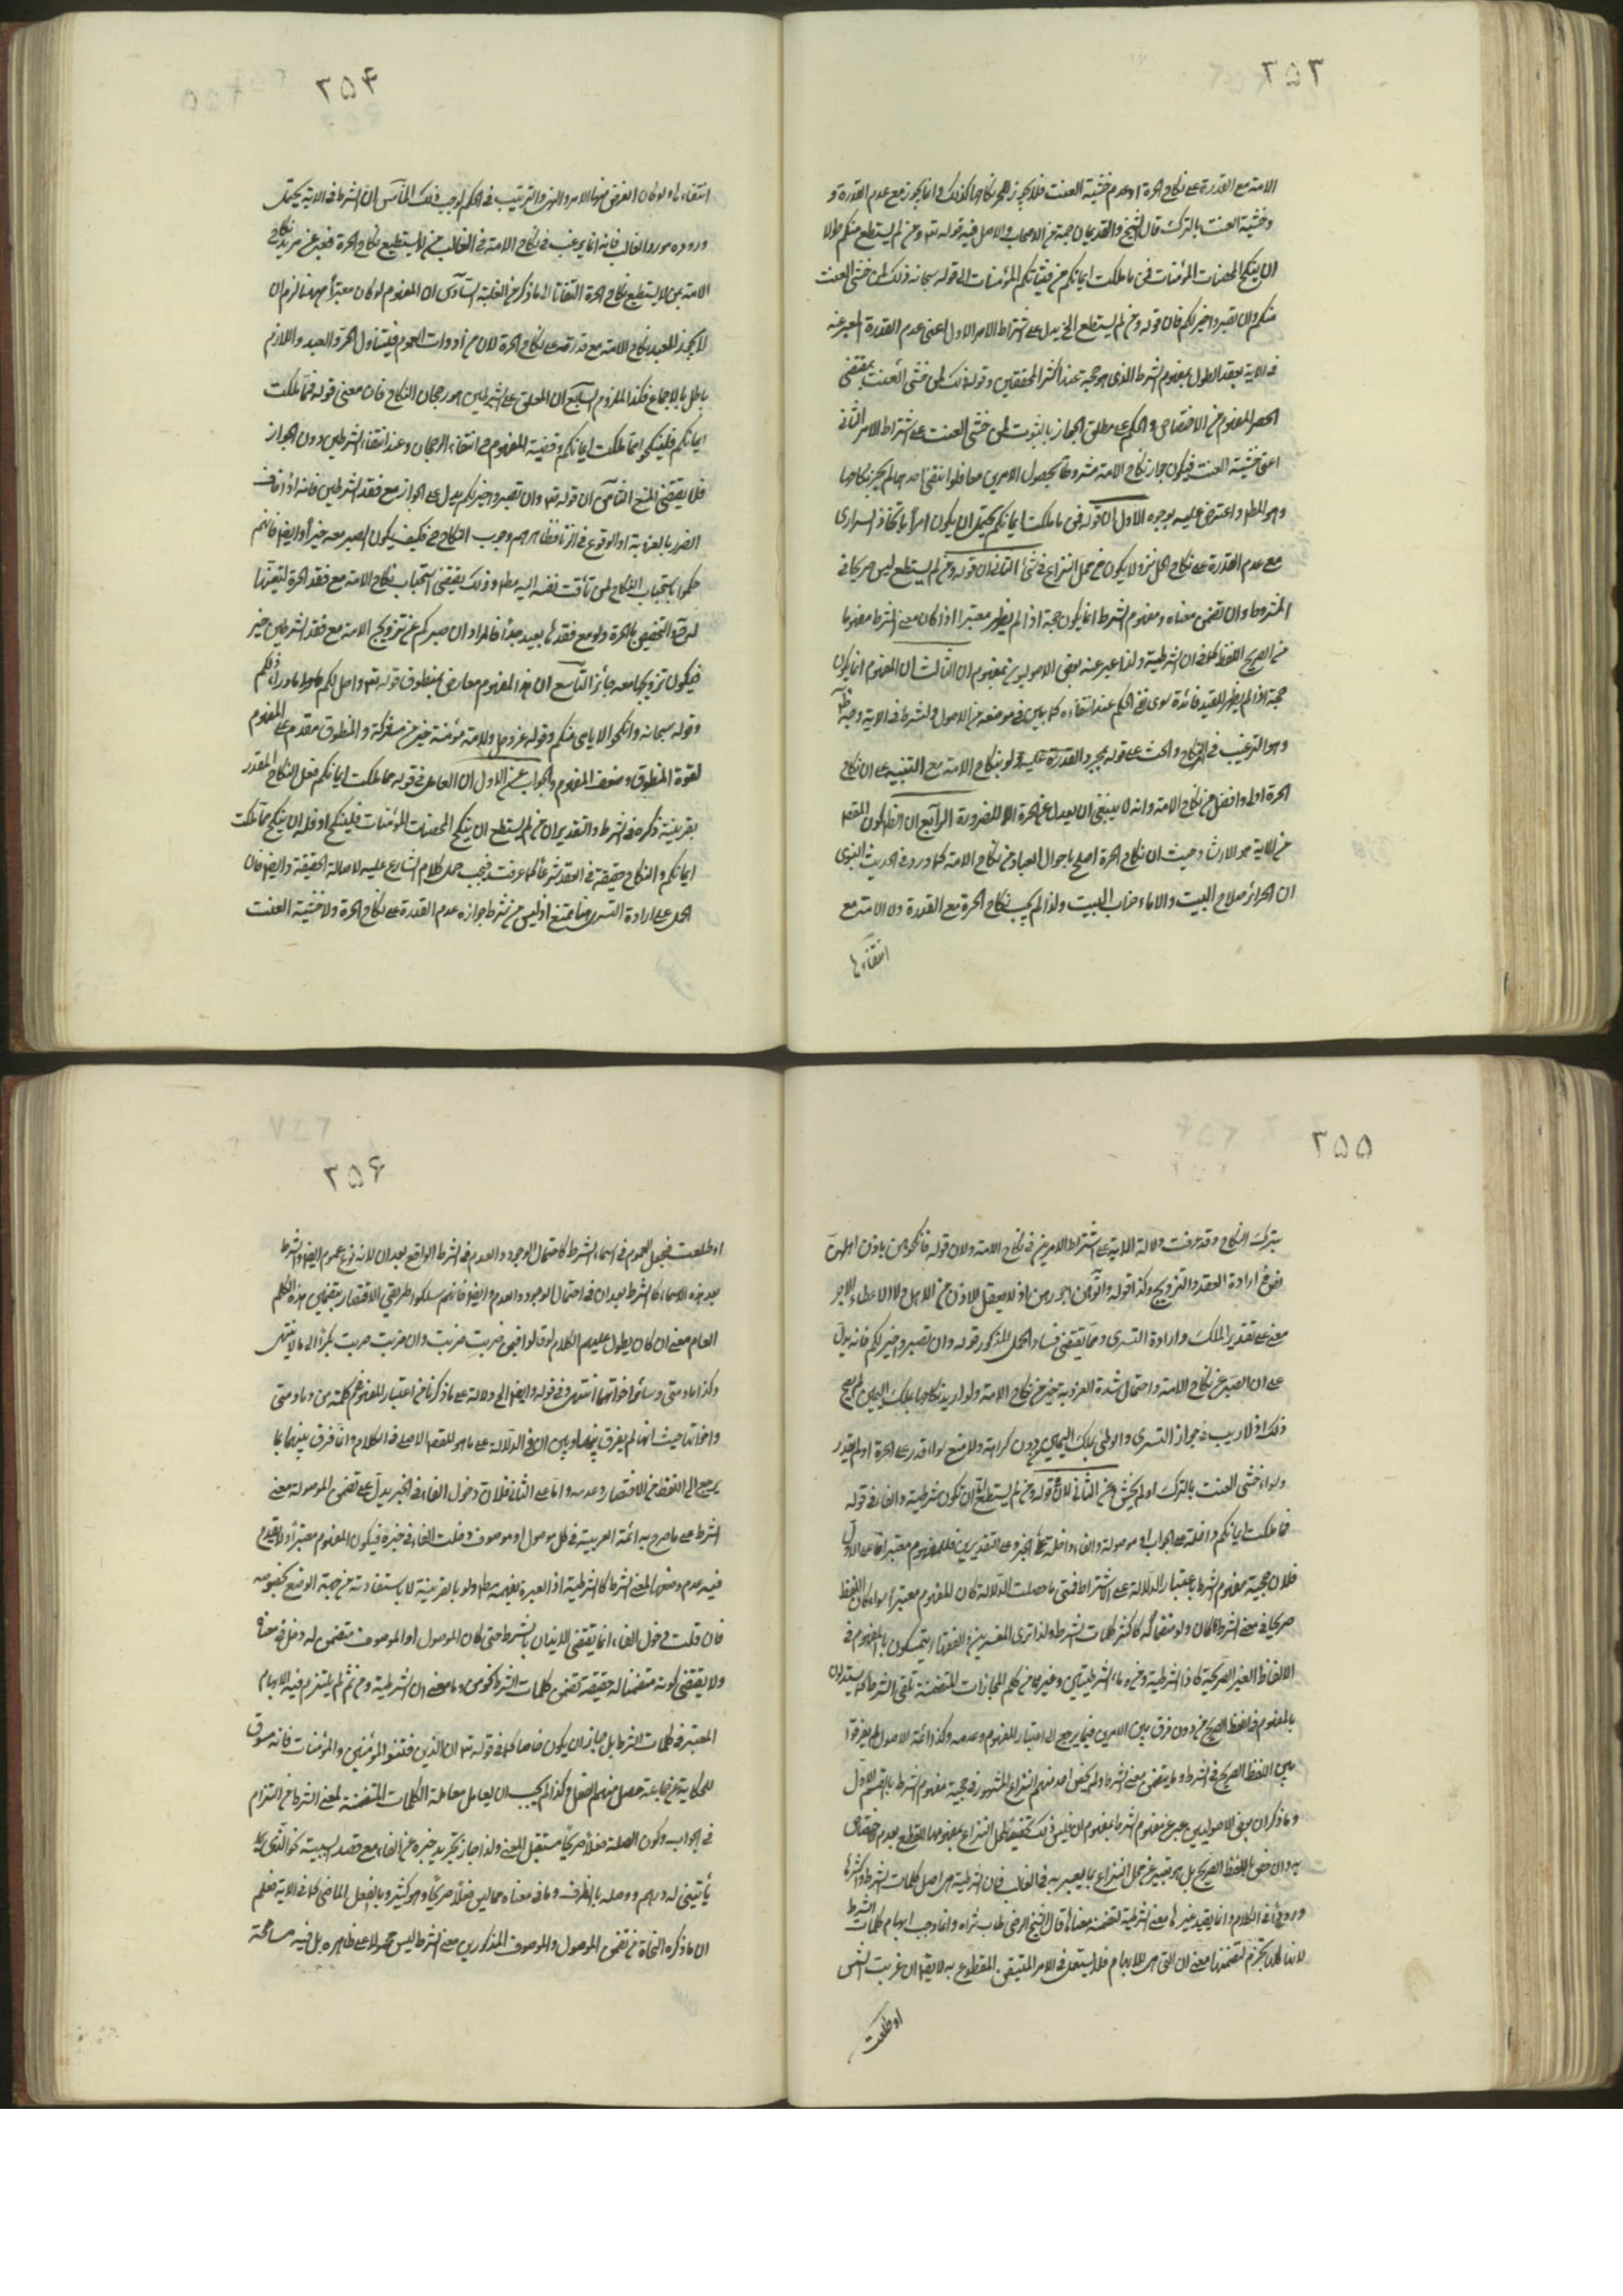 ٢٥٣
الامة مع القدرة على نكاح الحرة او عدم خشية العنت فلا يجوز للحر نكاحها كذلك وانما يجوز مع عدم القدرة
وخشية العنت بالترك قال الشيخ والقديمان جمة من الاصحاب والاصل فيه قوله تعه ومن لم يستطع منكم طولا
ان ينكح المحصنات المؤمنات فمن ما ملكت ايمانكم من فتياتكم المؤمنات الى قوله سبحانه ذلك لمن خشى العنت
منكم وان تصبروا خير لكم فان قوله ومن لم يستطع الخ يدل على اشتراط الامر الاول اعنى عدم القدرة المعبر عنه
فى الاية بفقد الطول بمفهوم الشرط الذى هو حجة عند اكثر المحققين وقوله ذلك لمن خشى العنت بمقتضى
الحصر المفهوم من الاختصاص و الحكم على مطلق الجواز بالثبوت لمن خشى العنت على اشتراط الامر الثانى
اعنى خشية العنت فيكون جواز نكاح الامة مشروطا بحصول الامرين معا فلو انتفى احدهما لم يجز نكاحها
وهو المطلوب واعترض عليه بوجوه الاول ان قوله فمن ما ملكت ايمانكم يحتمل ان يكون امرا باتخاذ السرارى
مع عدم القدرة على نكاح الحرائر ولا يكون من محل النزاع فى شئ الثانى ان قوله ومن لم يستطع ليس صريحا فى
الشرط وان تضمن معناه ومفهوم الشرط انما يكون حجة اذا لم يظهر معتبرا اذا كان معنى الشرط مفهوما
من الصريح اللفظ كلفظ ان الشرطية ولذا عبر عنه بعض الاصوليين بمفهوم ان الثالث ان المفهوم انما يكون
حجة اذا لم يظهر للقيد فائدة سوى نفى الحكم عند انتفاءه كما بين فى موضعه من الاصول والشرط فى الاية
وهو الترغيب فى النكاح والحث على قوله بمجرد القدرة عليه ولو بنكاح الامة مع التنبيه على ان نكاح
الحرة اولى وافضل من نكاح الامة وانه لا ينبغى ان يعدل عن الحرة الا للضرورة الرابع ان الظ كون المقصد
من الاية هو الارشاد حيث ان نكاح الحرة اصلح باحوال العباد من نكاح الامة كما ورد فى الحديث النبوى
ان الحرائر صلاح البيت والاماء خراب البيت ولذا لم يجب نكاح الحرة مع القدرة ولا الامة مع
انتفائها
٢٥۴
انتفاءها ولو كان الغرض منها الامر والنهى والترتيب فى الحكم لوجب ذلك الخامس ان الشرط فى الاية يحتمل
وروده مورد الغالب فانه انما يرغب فى نكاح الامة فى الغالب من لا يستطيع نكاح الحرة فعبر عن مريد نكاح
الامة بمن لا يستطيع نكاح الحرة التفاتا الى ما ذكر من الغلبة السادس ان المفهوم لو كان معتبرا ههنا لزم ان
لا يجوز للعبد نكاح الامة مع قدرته على نكاح الحرة لان من ادوات العموم فيتناول الحر والعبد واللازم
باطل بالاجماع فكذا الملزوم السابع ان المعلق على الشرطين هو رجحان النكاح فان معنى قوله فمما ملكت
ايمانكم فلينكحوا مما ملكت ايمانكم وقضية المفهوم ح انتفاء الرجحان وعند انتفاء الشرطين دون الجواز
فلا يقتضى المنع الثامن ان قوله تعه وان تصبروا خير لكم يدل على الجواز مع فقد الشرطين فانه اذا خاف
الضرر بالعزوبة او الوقوع فى الزنا فظاهرهم وجوب النكاح ح فكيف يكون الصبر معه خيرا وايضا فانهم
حكموا باستحباب النكاح لمن تاقت نفسه اليه مطلقا وذلك يقتضى استحباب نكاح الامة مع فقد الحرة لتعينها
التخصيص بالحرة ولو مع فقدها بعيد جدا فالمراد ان صبركم عن تزويج الامة مع فقد الشرطين خير
فيكون تزويجها معه جائزا التاسع ان هذا المفهوم معارض بمنطوق قوله تعه واحل لكم ما وراء ذلكم
وقوله سبحانه وانكحوا الايامى منكم وقوله عز وجل ولامة مؤمنة خير من مشركة والمنطوق مقدم على المفهوم
لقوة المنطوق وضعف المفهوم والجواب عن الاول ان العامل فى قوله مما ملكت ايمانكم فعل النكاح المقدر
بقرينة ذكره فى الشرط والتقدير ان من لم يستطع ان ينكح المحصنات المؤمنات فلينكح او فله ان ينكح مما ملكت
ايمانكم والنكاح حقيقة فى العقد شرعا كما عرفت فيجب حمل كلام الشارع عليه لاصالة الحقيقة وايضا فان
الحمل على ارادة التسرى هنا ممتنع اذ ليس من شرط جوازه عدم القدرة على نكاح الحرة ولا خشية العنت
٢٥۵
بترك النكاح وقد عرفت دلالة الاية على اشتراط الامرين فى نكاح الامة ولان قوله فانكحوهن باذن اهلهن
نص فى ارادة العقد والتزويج وكذا قوله واتوهن اجورهن اذ لا يعقل الاذن من الاهل ولا الاعطاء للاجر
معنى على تقدير الملك وارادة التسرى ومما يقتضى فساد الحمل المذكور قوله وان تصبروا خير لكم فانه يدل
على ان الصبر عن نكاح الامة واحتمال شدة العزوبة خير من نكاح الامة ولو اريد نكاحها بملك اليمين لم يصح
ذلك اذ لا ريب فى جواز التسرى والوطى بملك اليمين بدون كراهة ولا منع سواء قدر على الحرة او لم يقدر
وسواء خشى العنت بالترك او لم يخش وعن الثانى فلان قوله ومن لم يستطع اما ان تكون شرطية والفاء فى قوله
فمما ملكت ايمانكم داخلة على الجواب او موصولة والفاء داخلة على الخبر وعلى التقديرين فالمفهوم معتبر اما على الاول
فلان حجية مفهوم الشرط باعتبار الدلالة على الاشتراط فمتى ما حصلت الدلالة كان المفهوم معتبرا سواء كان اللفظ
صريحا فى معنى الشرط كان ولو متضمنا له كاكثر كلمات الشرط ولذا ترى المفسرين والفقهاء يتمسكون بالمفهوم فى
الالفاظ الغير الصريحة كاذا الشرطية ومن وما الشرطيتين وغيرها من كلم المجازات المتضمنة لمعنى الشرط كما يستدلون
بالمفهوم فى لفظ الصريح من دون فرق بين الامرين فيما يرجع الى اعتبار المفهوم وعدمه وكذا ائمة الاصول لم يفرقوا
بين اللفظ الصريح فى الشرط وما يتضمن معنى الشرط ولم يخص احد منهم النزاع المشهور فى حجية مفهوم الشرط بالقسم الاول
وما ذكر ان بعض الاصوليين عبر عن مفهوم الشرط بمفهوم ان فليس ذلك تخصيصا لمحل النزاع بمفهومها للقطع بعدم اختصاص
به وان خص باللفظ الصريح بل هو تعبير عن محل النزاع بما يعبر به فى الغالب فان ان الشرطية هى اصل كلمات الشرط واكثرها
ورودا فى الكلام وانما يفيد غيرها معنى الشرطية لتضمنه معناها قال الشيخ الرضى طاب ثراه وانما وجب ابهام كلمات الشرط
لانها كلها تجزم لتضمنها معنى ان التى هى للابهام فلا يستعمل فى الامر المتيقن المقطوع به لا يقال ان غربت الشمس
او طلعت
٢٥۶
او طلعت فجعل العموم فى اسماء الشرط كاحتمال الوجود والعدم فى الشرط الواقع بعد ان لانه نوع عموم ايضا والشرط
بعد هذه الاسماء كالشرط بعد ان فى احتمال الوجود والعدم وايضا فانهم سلكوا طريق الاختصار بتضمين هذه الكلم
العام معنى ان اذ كان يطول عليهم الكلام لو قالوا فى من ضربت ضربت وان ضربت ضربت بكرا الى ما لا يتناهى
وكذا ما ومتى وسائر اخواتها انتهى وفى قوله وايضا الخ دلالة على ما ذكرنا من اعتبار المفهوم فى كلمة من وما ومتى
واخواتها حيث انه لم يفرق بينها وبين ان فى الدلالة على ما هو المقصد الاصلى فى الكلام وانما فرق بينهما بما
يرجع الى اللفظ من الاختصار وعدمه واما على الثانى فلان دخول الفاء فى الخبر يدل على تضمن الموصولة معنى
الشرط على ما صرح به ائمة العربية فى كل موصول او موصوف دخلت الفاء فى خبره فيكون المفهوم معتبرا ولا يقدح
فيه عدم وضعها لمعنى الشرط كالشرطية اذ العبرة بفهم الشرط ولو بالقرينة لا باستفادته من جهة الوضع بخصوصه
فان قلت دخول الفاء انما يقتضى الايذان بالشرط حتى كان الموصول او الموصوف متضمن له دخل فى معناه
ولا يقتضى كونه متضمنا له حقيقة تضمن كلمات الشرط نحو من وما معنى ان الشرطية ومن ثم لم يلتزم فيه الابهام
المعتبر فى كلمات الشرط بل جاز ان يكون خاصا كما فى قوله تعه ان الذين فتنوا المؤمنين والمؤمنات فانه مسوق
للحكاية عن جماعة حصل منهم الفعل وكذا لم يجب ان يعامل معاملة الكلمات المتضمنة لمعنى الشرط من التزام
فى الجواب وكون الصلة فعلا صريحا مستقبل المعنى ولذا جاز تجريد خبره عن الفاء مع قصد السببية نحو الذى
يأتينى له درهم ووصله بالظرف وما فى معناه مما ليس فعلا صريحا وهو كثير وبالفعل الماضى كما فى الاية فعلم
ان ما ذكره النحاة من تضمن الموصول والموصوف المذكورين معنى الشرط ليس محمولا على ظاهره بل فيه مسامحة